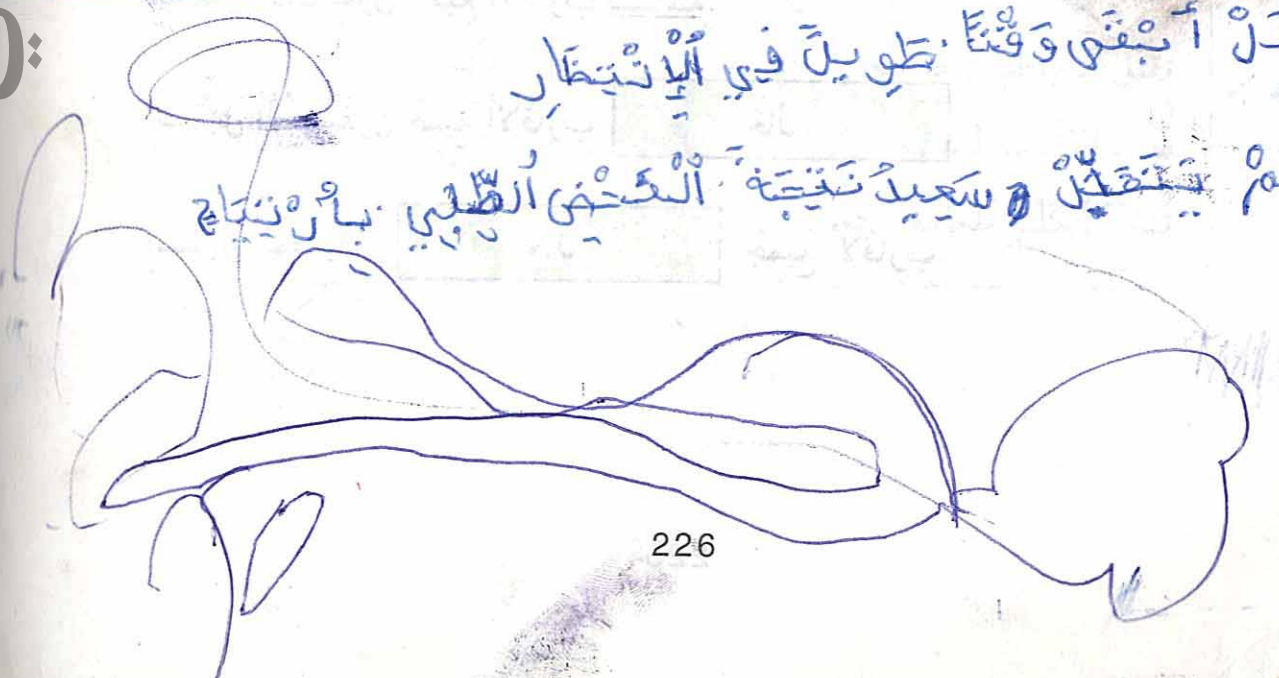 أَبْقَى وَقْتًا طَوِيلً فِي اُلْإِنْتِظَارِ
سَعِيدُ نَتِيجَةَ اَلْفَحْصِ اُلطِّبِي بِأرْتِيَاح
226